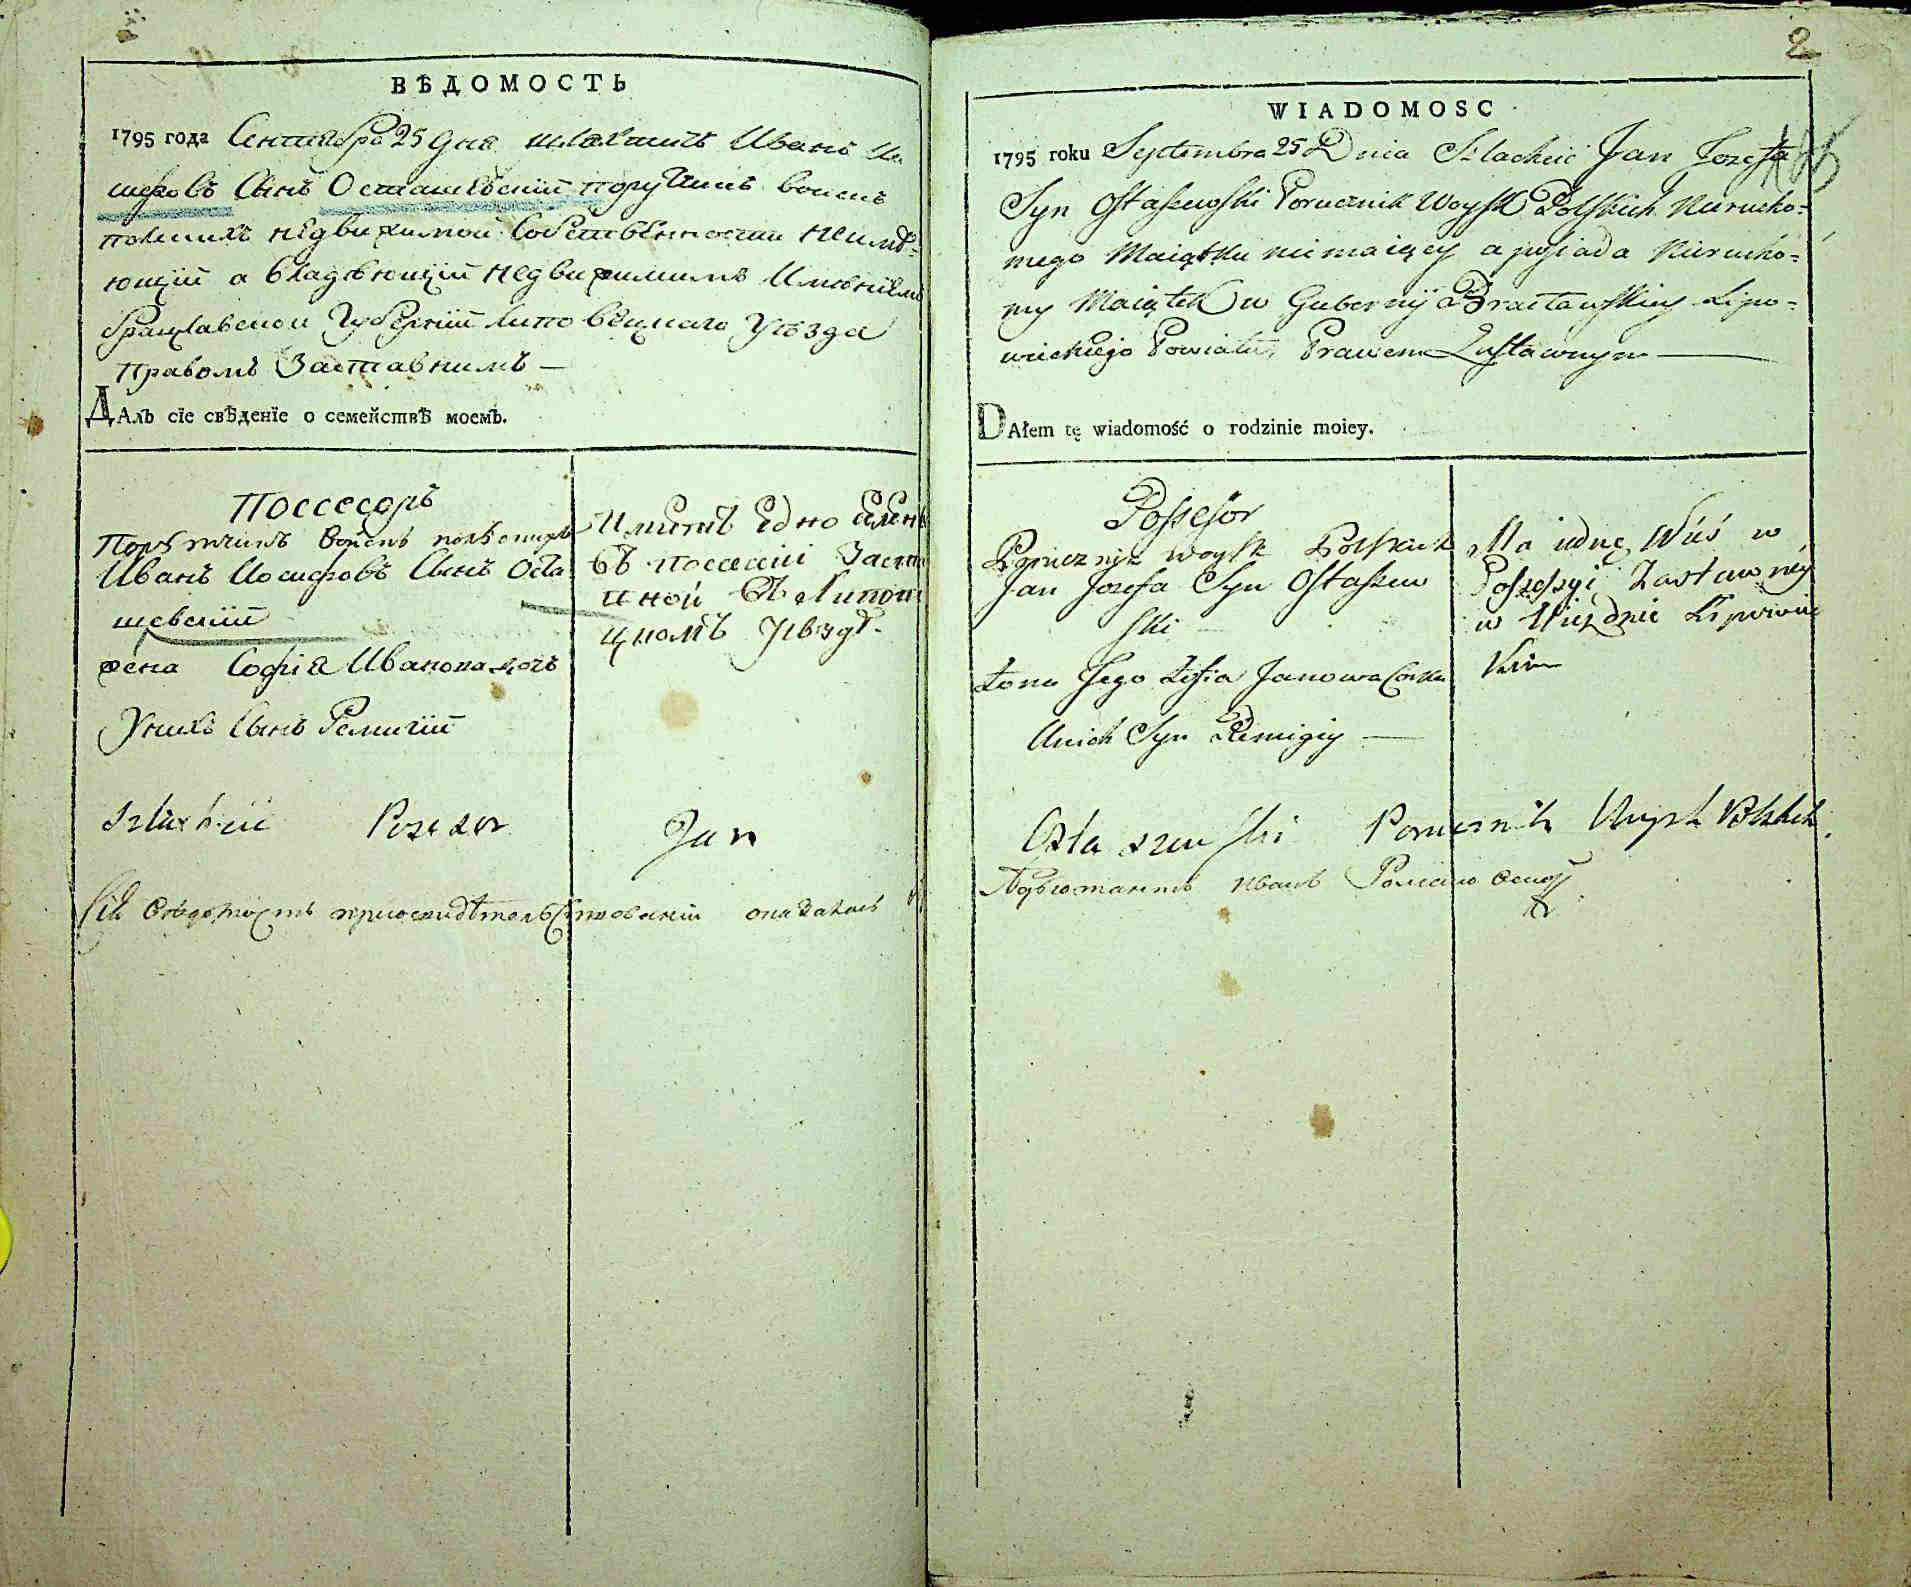 ВѢДОМОСТЬ
1795 года Сентября 25 дня шляхтичъ Иванъ Ио
сифовъ Сынъ Осташевский порутчикъ воискъ
полскихъ недвижимой собственности неимѣ-
ющий а владѣющий недвижимимъ имѣниемъ
Брацлавской Губернии Липовецкаго Уѣзда
правомъ Заставнимъ —
ДАлъ сіе свѣденіе о семействѣ моемъ.
Поссесоръ
Порутчикъ Войскъ полскихъ
Иванъ Иосифовъ Сынъ Оста
шевский
жена София Иванова дочь
Унихъ Сынъ Ремигий
Имеетъ Едно
въ поссесіи Заста
вной въ Липове
цкомъ Уѣздѣ
Szlachcic Posesor Jan
Сія Вѣдомость при освидѣтельствованіи оказалась
2
WIADOMOSC
1795 roku Septembra 25 Dnia Szlachcic Jan Jozefa
Syn Ostaszewski Porucznik Woysk Polskich Nierucho=
mego Maiątku niemaiący a posiada Nierucho=
my Maiątek w Gubernij Bracławskiey Lipo=
wieckiego Powiatu, Prawem Zastawnym —
DAłem tę wiadomość o rodzinie moiey.
Possesor
Porucznik Woysk Polskich
Jan Jozefa Syn Ostaszew
ski
Żona Jego Zofia Janowa Corka
Unich Syn Remigiy —
Ma iednę Wieś w
Possessyi Zastawney
w Ujezdzie Lipowiec
kim
Ostaszewski Porucznik Woysk Polskich.
Адъютантъ Иванъ